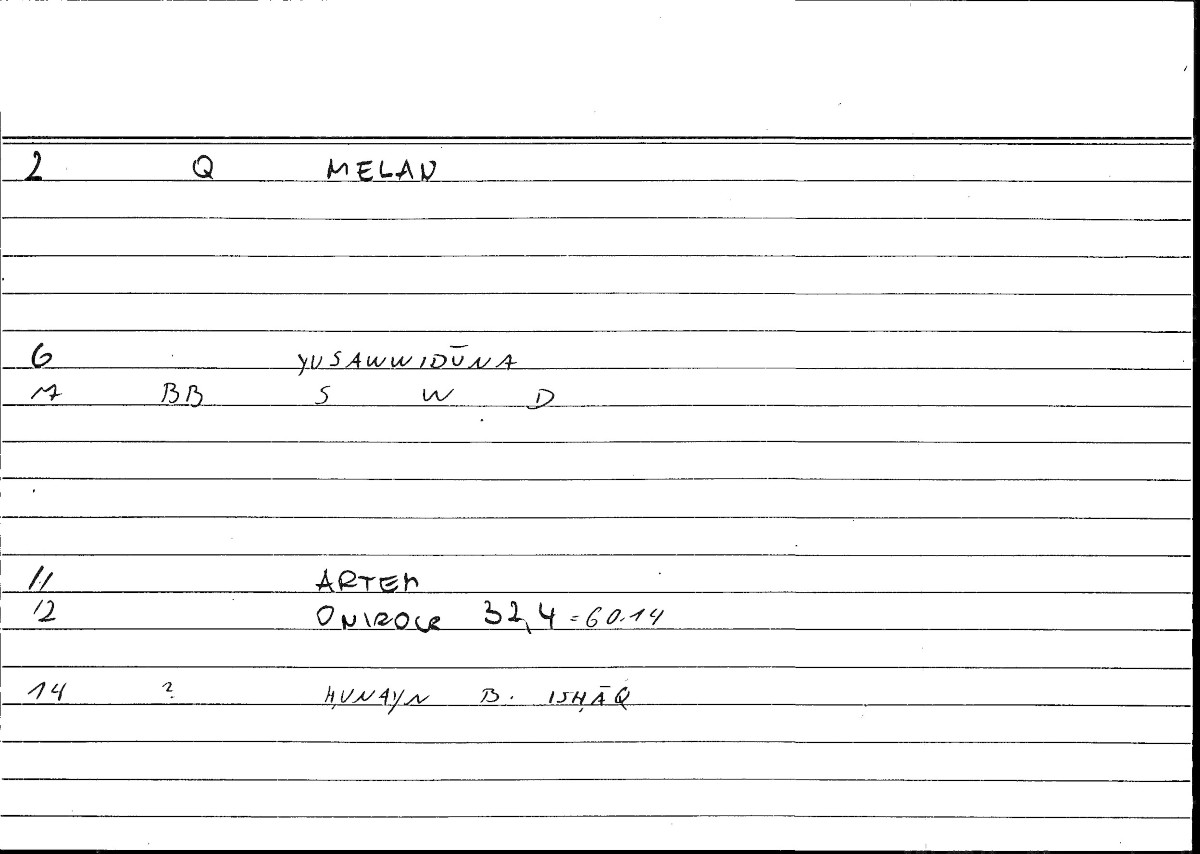 2 Q MELAN
6 YUSAWWIDŪNA
7 BB S W D
11 ARTEM
12 ONIROCR 32,4 = 60.14
14 ? ḤUNAYN B. ISḤĀQ